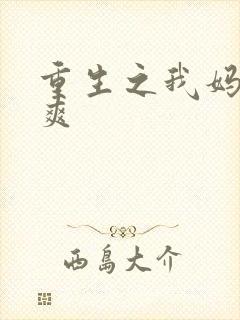 重生之我妈
爽
西岛大介